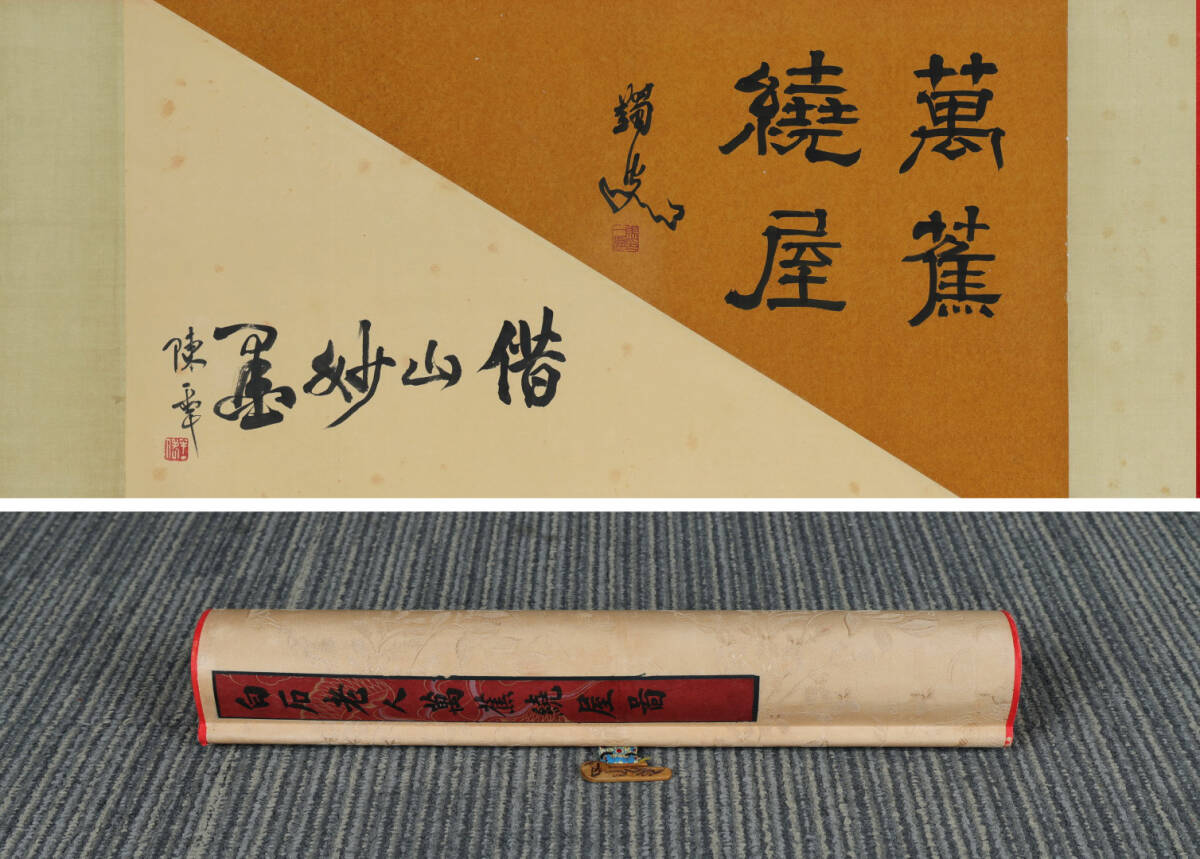 萬蕉
繞屋
借山妙墨
陳半丁
白石老人萬蕉繞屋啚